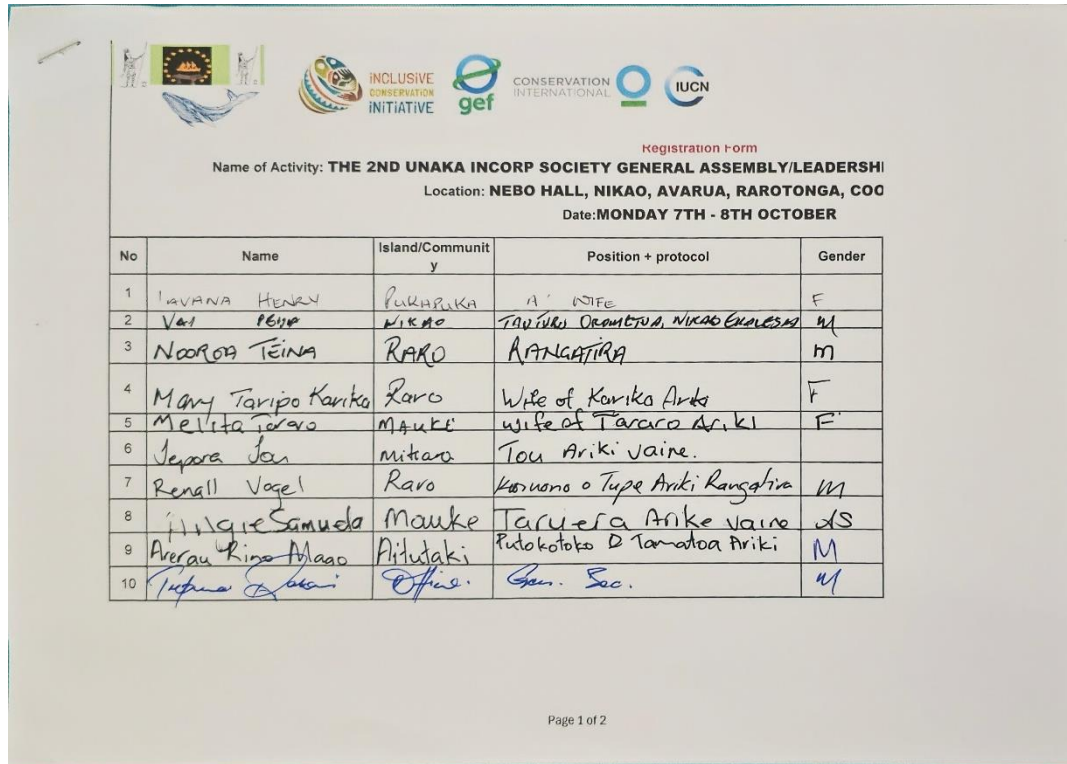 INCLUSIVE
CONSERVATION
INITIATIVE
gef
CONSERVATION
INTERNATIONAL
IUCN
Registration Form
Name of Activity: THE 2ND UNAKA INCORP SOCIETY GENERAL ASSEMBLY/LEADERSHI
Location: NEBO HALL, NIKAO, AVARUA, RAROTONGA, COO
Date:MONDAY 7TH - 8TH OCTOBER
No Name Island/Communit Position + protocol Gender
y
1 HENRY PUKAPUKA WIFE F
2 Vai NIKAO M
3 NOOROA TEINA RARO RANGATIRA m
4 Mary Taripo Karika Raro Wife of Karika F
5 Melita Mauke wife of Tararo Ariki F
6 Tepora Mitiaro Tou Ariki vaine.
7 Renall Vogel Raro o Tupe Ariki Rangatira M
8 Samuela Mauke vaine
9 Aitutaki Tamatoa Ariki M
10 Office. Gen. Sec. M
Page 1 of 2